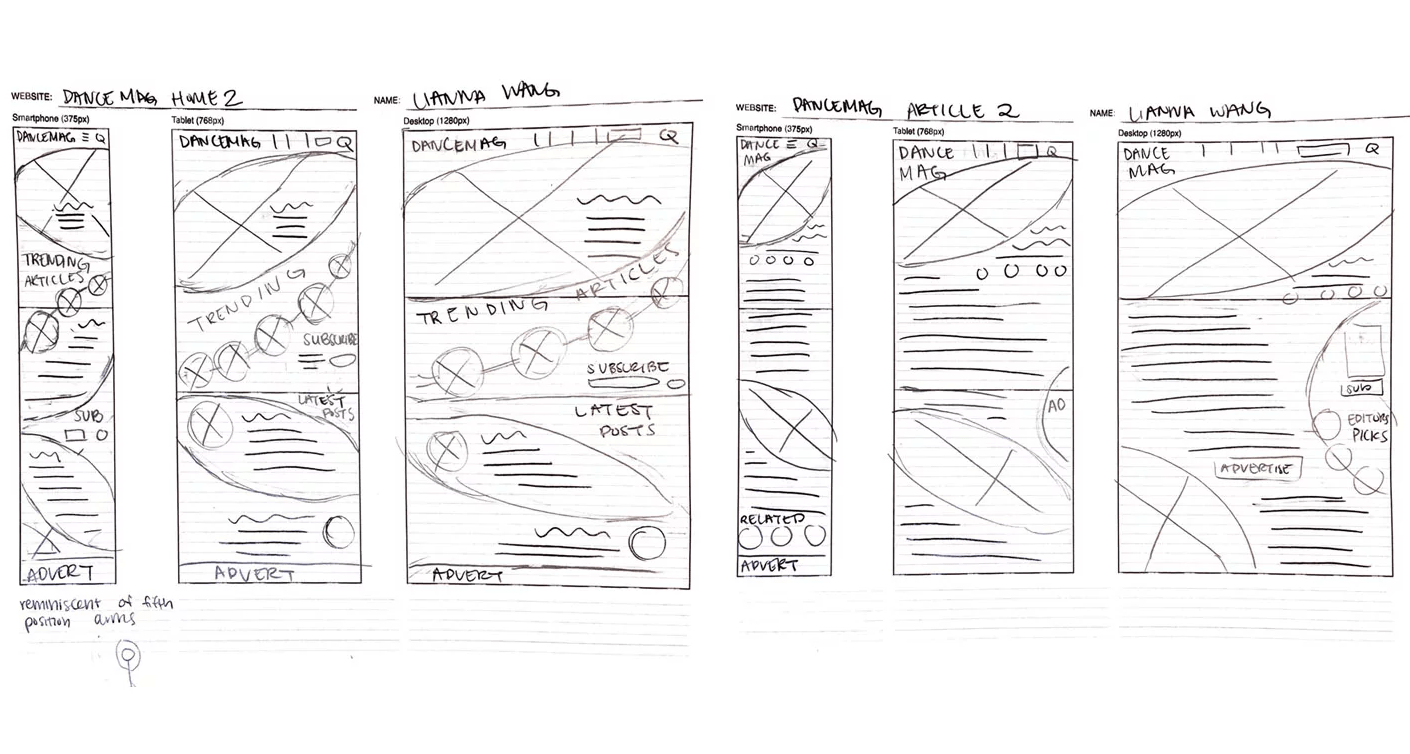 WEBSITE: DANCE MAG HOME 2
NAME: LIANNA WANG
Smartphone (375px)
DANCEMAG Q
TRENDING
ARTICLES
SUB
ADVERT
reminiscent of fifth
position arms
Tablet (768px)
DANCEMAG Q
TRENDING
SUBSCRIBE
LATEST
POSTS
ADVERT
Desktop (1280px)
DANCEMAG Q
TRENDING ARTICLES
SUBSCRIBE
LATEST
POSTS
ADVERT
WEBSITE: DANCEMAG ARTICLE 2
NAME: LIANNA WANG
Smartphone (375px)
DANCE Q
MAG
RELATED
ADVERT
Tablet (768px)
DANCE Q
MAG
AD
Desktop (1280px)
DANCE Q
MAG
SUB
EDITORS
PICKS
ADVERTISE